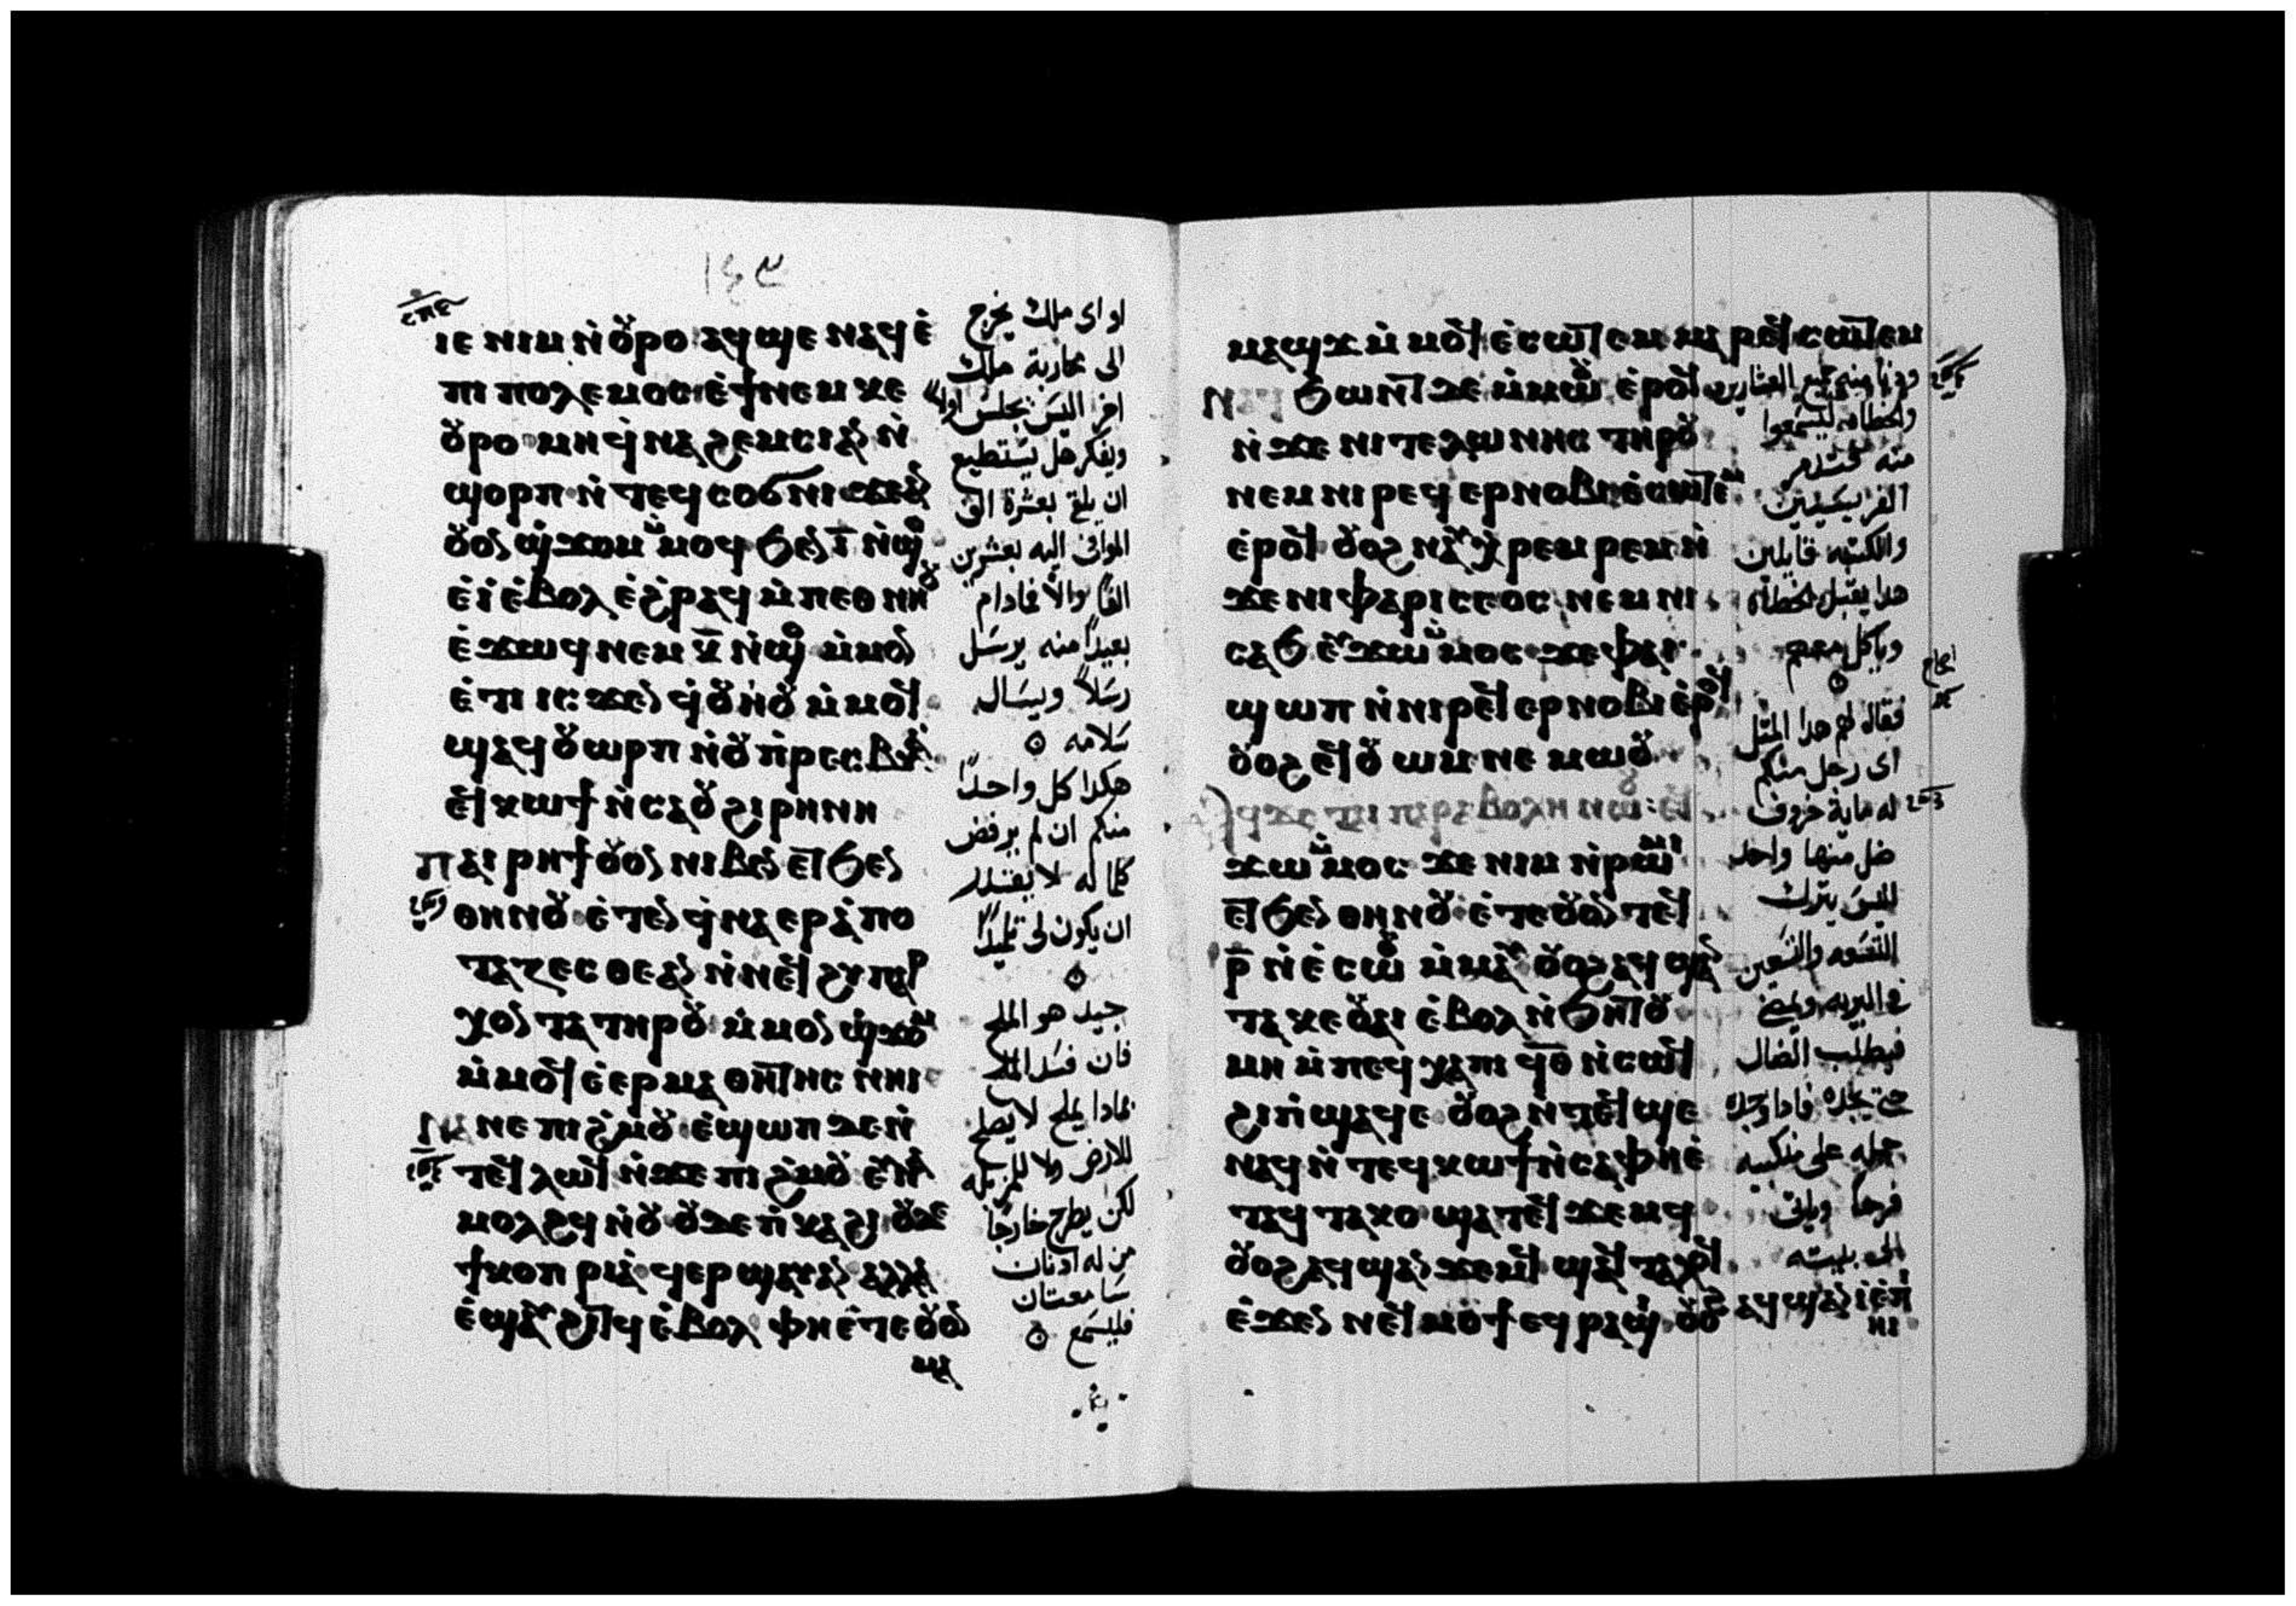 ⲓⲉ ⲛⲓⲙ ⲛ̀ⲟⲩⲣⲟ ⲁϥϣⲉ ⲛⲁϥ ⲉ̀
ⲡⲓ ⲡⲟⲗⲉⲙⲟⲥ ⲉ̀ϯ ⲛⲉⲙ ⲕⲉ
ⲟⲩⲣⲟ ⲙⲏ ϥ̀ⲛⲁ ϩⲉⲙⲥⲓ ⲁⲛ ⲛ̀
ϣⲟⲣⲡ ⲛ̀ⲧⲉϥ ⲥⲟϭⲛⲓ ϫⲉ ⲁⲛ
ⲟⲩⲟⲛ ϣ̀ϫⲟⲙ ⲙ̀ⲙⲟϥ ϧⲉⲛ ⲓ̅ ⲛ̀ϣⲟ
ⲉ̀ⲓ̀ ⲉ̀ⲃⲟⲗ ⲉ̀ϩ̀ⲣⲁϥ ⲙ̀ⲡⲉⲑⲛⲏⲟⲩ
ⲉ̀ϫⲱϥ ⲛⲉⲙ ⲕ̅ ⲛ̀ϣⲟ ⲙ̀ⲙⲟⲛ
ⲉ̀ⲧⲓ ⲓⲥϫⲉⲛ ϥ̀ⲟⲩⲏⲟⲩ ⲙ̀ⲙⲟϥ
ϣⲁϥⲟⲩⲱⲣⲡ ⲛ̀ⲟⲩⲡ̀ⲣⲉⲥⲃⲓⲁ
ⲉϥⲕⲱϯ ⲛ̀ⲥⲁ ⲟⲩϩⲓⲣⲏⲛⲏ
ⲡⲁⲓ ⲣⲏϯ ⲟⲩⲟⲛ ⲛⲓⲃⲉⲛ ⲉⲧϧⲉⲛ
ⲑⲏⲛⲟⲩ ⲉ̀ⲧⲉⲛ ϥ̀ⲛⲁⲉⲣⲁ̀ⲡⲟ
ⲧⲁⲍⲉⲥⲑⲉ ⲁⲛ ⲛ̀ⲛⲉϥ ϩⲩⲡⲁⲣ
ⲭⲟⲛⲧⲁ ⲧⲏⲣⲟⲩ ⲙ̀ⲙⲟⲛ ϣ̀ϫⲟⲙ
ⲙ̀ⲙⲟϥ ⲉ̀ⲉⲣ ⲙⲁⲑⲏⲧⲏⲥ ⲛⲏⲓ
ⲛⲁⲛⲉ ⲡⲓϩ̀ⲙⲟⲩ ⲉ̀ϣⲱⲡ ⲇⲉ ⲛ̀
ⲧⲉϥⲗⲱϥ ⲛ̀ϫⲉ ⲡⲓϩ̀ⲙⲟⲩ ⲉⲩⲛⲁ
ⲙⲟⲗϩϥ ⲛ̀ⲟⲩ ⲟⲩⲇⲉ ⲡ̀ⲕⲁϩⲓ ⲟⲩⲇⲉ
ϯⲕⲟⲡⲣⲓⲁ̀ ϥⲉⲣϣⲁⲩ ⲁⲛ ⲁⲗⲗⲁ
ⲉ̀ϣⲁⲩϩⲓⲧϥ ⲉ̀ⲃⲟⲗ ⲫⲏⲉ̀ⲧⲉ ⲟⲩⲟⲛ
ⲙⲁ
او اى ملك يخرج
الى محاربة ملك
اخر اليس يجلس اولاً
ويفكر هل يستطيع
ان يلقى بعشرة الف
الموافى اليه بعشرين
الفاً والا فمادام
بعيداً منه يرسل
رسلاً ويسال
سلامه
هكدا كل واحداً
منكم ان لم يرفض
كلما له لا يقتدر
ان يكون لى تلميداً
جيد هو الملح
فان فسد الملح
بمادا يملح لا يصلح
للارض ولا للمزبله
لكن يطرح خارجاً
من له ادنان
سامعتان
فليسمع
ⲙⲁϣϫ ⲙ̀ⲙⲟϥ ⲉ̀ⲥⲱⲧⲉⲙ ⲙⲁⲣⲉϥⲥⲱⲧⲉⲙ
ⲛⲁⲩϧⲱⲛⲧ ⲇⲉ ⲙ̀ⲙⲱⲟⲩ ⲉ̀ⲣⲟϥ
ⲛ̀ϫⲉ ⲛⲓⲧⲉⲗⲱⲛⲏⲥ ⲧⲏⲣⲟⲩ
ⲛⲉⲙ ⲛⲓⲣⲉϥⲉⲣⲛⲟⲃⲓ ⲉ̀ⲥⲱⲧⲉⲙ
ⲉ̀ⲣⲟϥ ⲟⲩⲟϩ ⲛⲁⲩⲭ̀ⲣⲉⲙⲣⲉⲙ ⲛ̀
ϫⲉ ⲛⲓⲫⲁⲣⲓⲥⲉⲟⲥ ⲛⲉⲙ ⲛⲓ
ⲥⲁϧ ⲉⲩϫⲱ ⲙ̀ⲙⲟⲥ ϫⲉ ⲫⲁⲓ
ϣⲱⲡ ⲛ̀ⲛⲓⲣⲉϥⲉⲣⲛⲟⲃⲓ ⲉ̀ⲣⲟϥ
ⲟⲩⲟϩ ⲉϥⲟⲩⲱⲙ ⲛⲉⲙⲱⲟⲩ
ⲁϥϫⲉ ⲧⲁⲓ ⲡⲁⲣⲁⲃⲟⲗⲏ ⲛⲱⲟⲩ ⲉϥ
ϫⲱ ⲙ̀ⲙⲟⲥ ϫⲉ ⲛⲓⲙ ⲛ̀ⲣⲱⲙⲓ
ⲉⲧϧⲉⲛ ⲑⲏⲛⲟⲩ ⲉ̀ⲧⲉ ⲟⲩⲟⲛ ⲧⲉϥ
ⲣ̅ ⲛ̀ⲉ̀ⲥⲱⲟⲩ ⲙ̀ⲙⲁⲩ ⲟⲩⲟϩ ⲁϥϣⲁⲛ
ⲧⲁⲕⲉ ⲟⲩⲁⲓ ⲉ̀ⲃⲟⲗ ⲛ̀ϧⲏⲧⲟⲩ
ⲙⲏ ⲙ̀ⲡⲉϥⲭⲁ ⲡⲓϥ̅ⲑ̅ ⲛ̀ⲥⲱϥ
ϩⲓ ⲡ̀ϣⲁϥⲉ ⲟⲩⲟϩ ⲛ̀ⲧⲉϥϣⲉ
ⲛⲁϥ ⲛ̀ⲧⲉϥⲕⲱϯ ⲛ̀ⲥⲁ ⲫⲏⲉ̀
ⲧⲁϥⲧⲁⲕⲟ ϣⲁⲧⲉϥϫⲉⲙϥ
ⲟⲩⲟϩ ⲁϥϣⲁⲛϫⲉⲙϥ ϣⲁϥⲧⲁⲗⲟϥ
ⲉ̀ϫⲉⲛ ⲛⲉϥⲙⲟϯ ⲉϥⲣⲁϣⲓ ⲟⲩⲟϩ ⲁϥϣⲁⲛⲓ̀ ⲉ̀ⲡ̀
ⲏⲓ
والخطاه ليسمعوا
منه فتدمر
الفريسيين
والكتبه قايلين
هدا يقبل الخطاه
وياكل معهم
فقال لهم هدا المثل
اى رجل منكم
له ماية خروف
ضل منها واحد
اليس يترك
التسعه والتسعين
فى البريه ويمضى
فيطلب الضال
حتى يجده فادا وجده
حمله على منكبيه
فرحاً وياتى
الى بيته